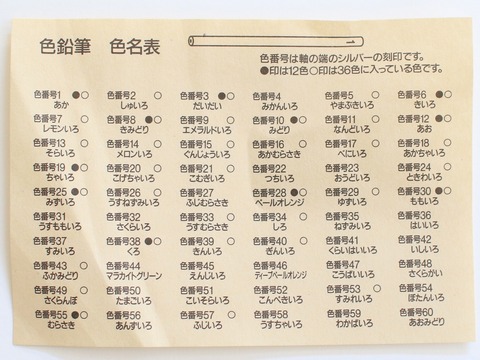 色鉛筆 色名表
色番号は軸の端のシルバーの刻印です。
●印は12色○印は36色に入っている色です。
色番号1 ●○ 色番号2 ○ 色番号3 ●○ 色番号4 色番号5 ○ 色番号6 ●○
あか しゅいろ だいだい みかんいろ やまぶきいろ きいろ
色番号7 ○ 色番号8 ●○ 色番号9 ○ 色番号10 ●○ 色番号11 ○ 色番号12 ●○
レモンいろ きみどり エメラルドいろ みどり なんどいろ あお
色番号13 ○ 色番号14 ○ 色番号15 ○ 色番号16 ○ 色番号17 ○ 色番号18 ○
そらいろ メロンいろ ぐんじょういろ あかむらさき べにいろ あかちゃいろ
色番号19 ●○ 色番号20 ○ 色番号21 ○ 色番号22 色番号23 色番号24 ○
ちゃいろ こげちゃいろ こむぎいろ つちいろ おうどいろ ときわいろ
色番号25 ●○ 色番号26 ○ 色番号27 色番号28 ●○ 色番号29 ○ 色番号30 ●○
みずいろ うすねずみいろ ふじむらさき ペールオレンジ ゆずいろ ももいろ
色番号31 色番号32 色番号33 ○ 色番号34 ○ 色番号35 色番号36
うすももいろ さくらいろ うすむらさき しろ ねずみいろ はいいろ
色番号37 色番号38 ●○ 色番号39 ○ 色番号40 ○ 色番号41 色番号42
すみいろ くろ きんいろ ぎんいろ くらいはいいろ いしいろ
色番号43 ○ 色番号44 色番号45 色番号46 色番号47 色番号48
ふかみどり マラカイトグリーン えんじいろ ディープペールオレンジ こうばいいろ さくらがい
色番号49 ○ 色番号50 色番号51 色番号52 色番号53 ○ 色番号54
さくらんぼ たまごいろ こいそらいろ こんぺきいろ すみれいろ ぼたんいろ
色番号55 ●○ 色番号56 色番号57 ○ 色番号58 色番号59 色番号60
むらさき あんずいろ ふじいろ うすちゃいろ わかばいろ あおみどり